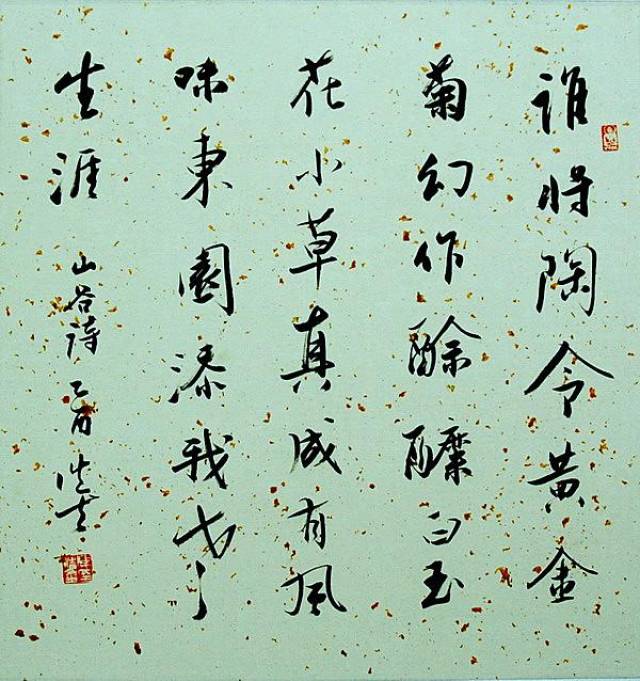 誰将陶令黄金
菊幻作酴醾白玉
花小草真成有風
味東園添我老
生涯 山谷詩 乙酉